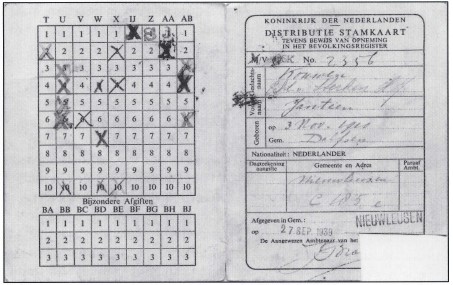 T U V W X IJ Z AA AB
1 1 1 1 1 1
2 2 2 2 2 2 2 2
3 3 3 3 3 3 3 3 3
4 4 4 4 4 4 4 4 4
5 5 5 5 5 5 5 5 5
6 6 6 6 6 6 6 6 6
7 7 7 7 7 7 7 7 7
8 8 8 8 8 8 8 8 8
9 9 9 9 9 9 9 9 9
10 10 10 10 10 10 10 10 10
Bijzondere Afgiften
BA BB BC BD BE BF BG BH BJ
1 1 1 1 1 1 1 1 1
2 2 2 2 2 2 2 2 2
3 3 3 3 3 3 3 3 3
KONINKRIJK DER NEDERLANDEN
DISTRIBUTIE STAMKAART
TEVENS BEWIJS VAN OPNEMING
IN HET BEVOLKINGSREGISTER
No. 2356
Jantien
Geboren op 3 Nov.
Gem. Dalfsen
Nationaliteit: NEDERLANDER
Dagtekening
Gemeente en Adres
Paraaf
Nieuwleusen
C 185
Afgegeven in Gem.: NIEUWLEUSEN
op 27 SEP. 1939
De Aangewezen Ambtenaar van het